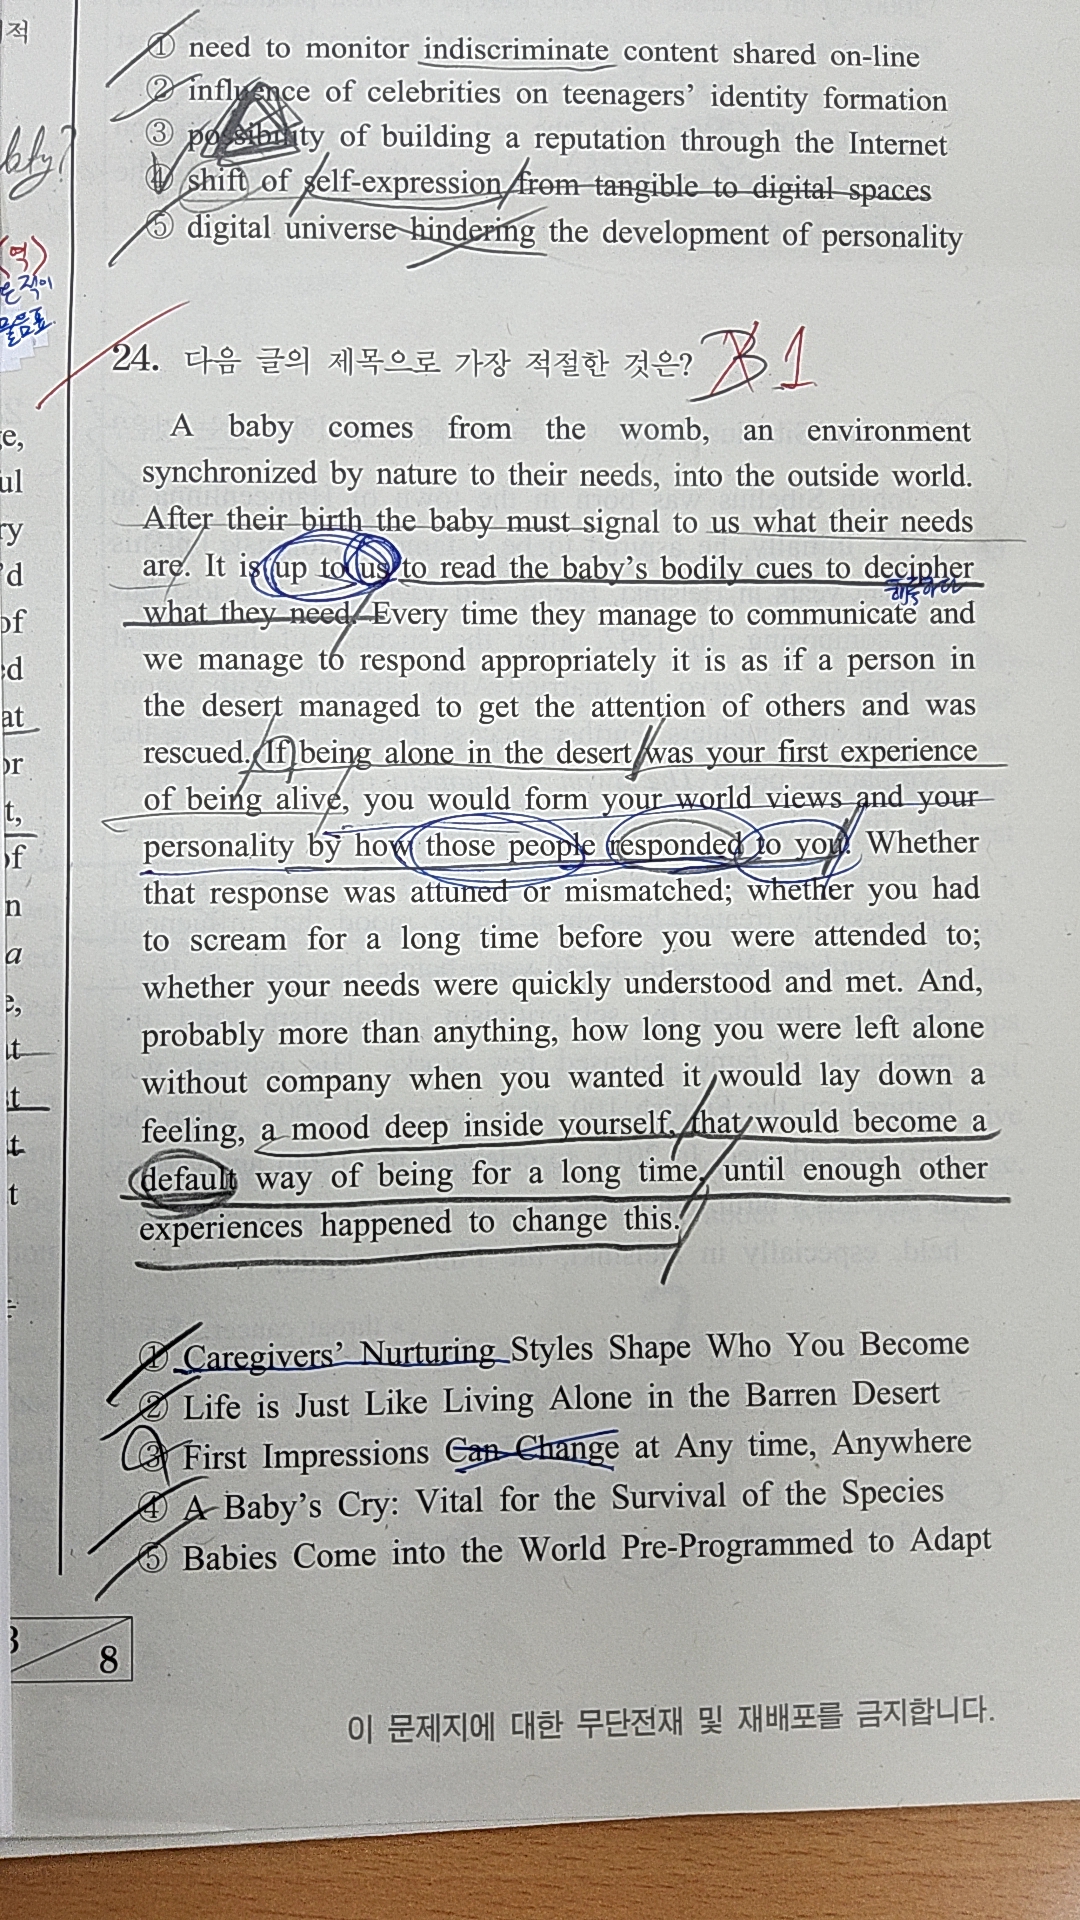 적
① need to monitor indiscriminate content shared on-line
② influence of celebrities on teenagers' identity formation
③ possibility of building a reputation through the Internet
④ shift of self-expression from tangible to digital spaces
⑤ digital universe hindering the development of personality
(역)
24. 다음 글의 제목으로 가장 적절한 것은? 1
A baby comes from the womb, an environment
synchronized by nature to their needs, into the outside world.
After their birth the baby must signal to us what their needs
are. It is up to us to read the baby's bodily cues to decipher
해독하다
what they need. Every time they manage to communicate and
we manage to respond appropriately it is as if a person in
the desert managed to get the attention of others and was
rescued. If being alone in the desert was your first experience
of being alive, you would form your world views and your
personality by how those people responded to you. Whether
that response was attuned or mismatched; whether you had
to scream for a long time before you were attended to;
whether your needs were quickly understood and met. And,
probably more than anything, how long you were left alone
without company when you wanted it would lay down a
feeling, a mood deep inside yourself, that would become a
default way of being for a long time, until enough other
experiences happened to change this.
① Caregivers' Nurturing Styles Shape Who You Become
② Life is Just Like Living Alone in the Barren Desert
③ First Impressions Can Change at Any time, Anywhere
④ A Baby's Cry: Vital for the Survival of the Species
⑤ Babies Come into the World Pre-Programmed to Adapt
8
이 문제지에 대한 무단전재 및 재배포를 금지합니다.